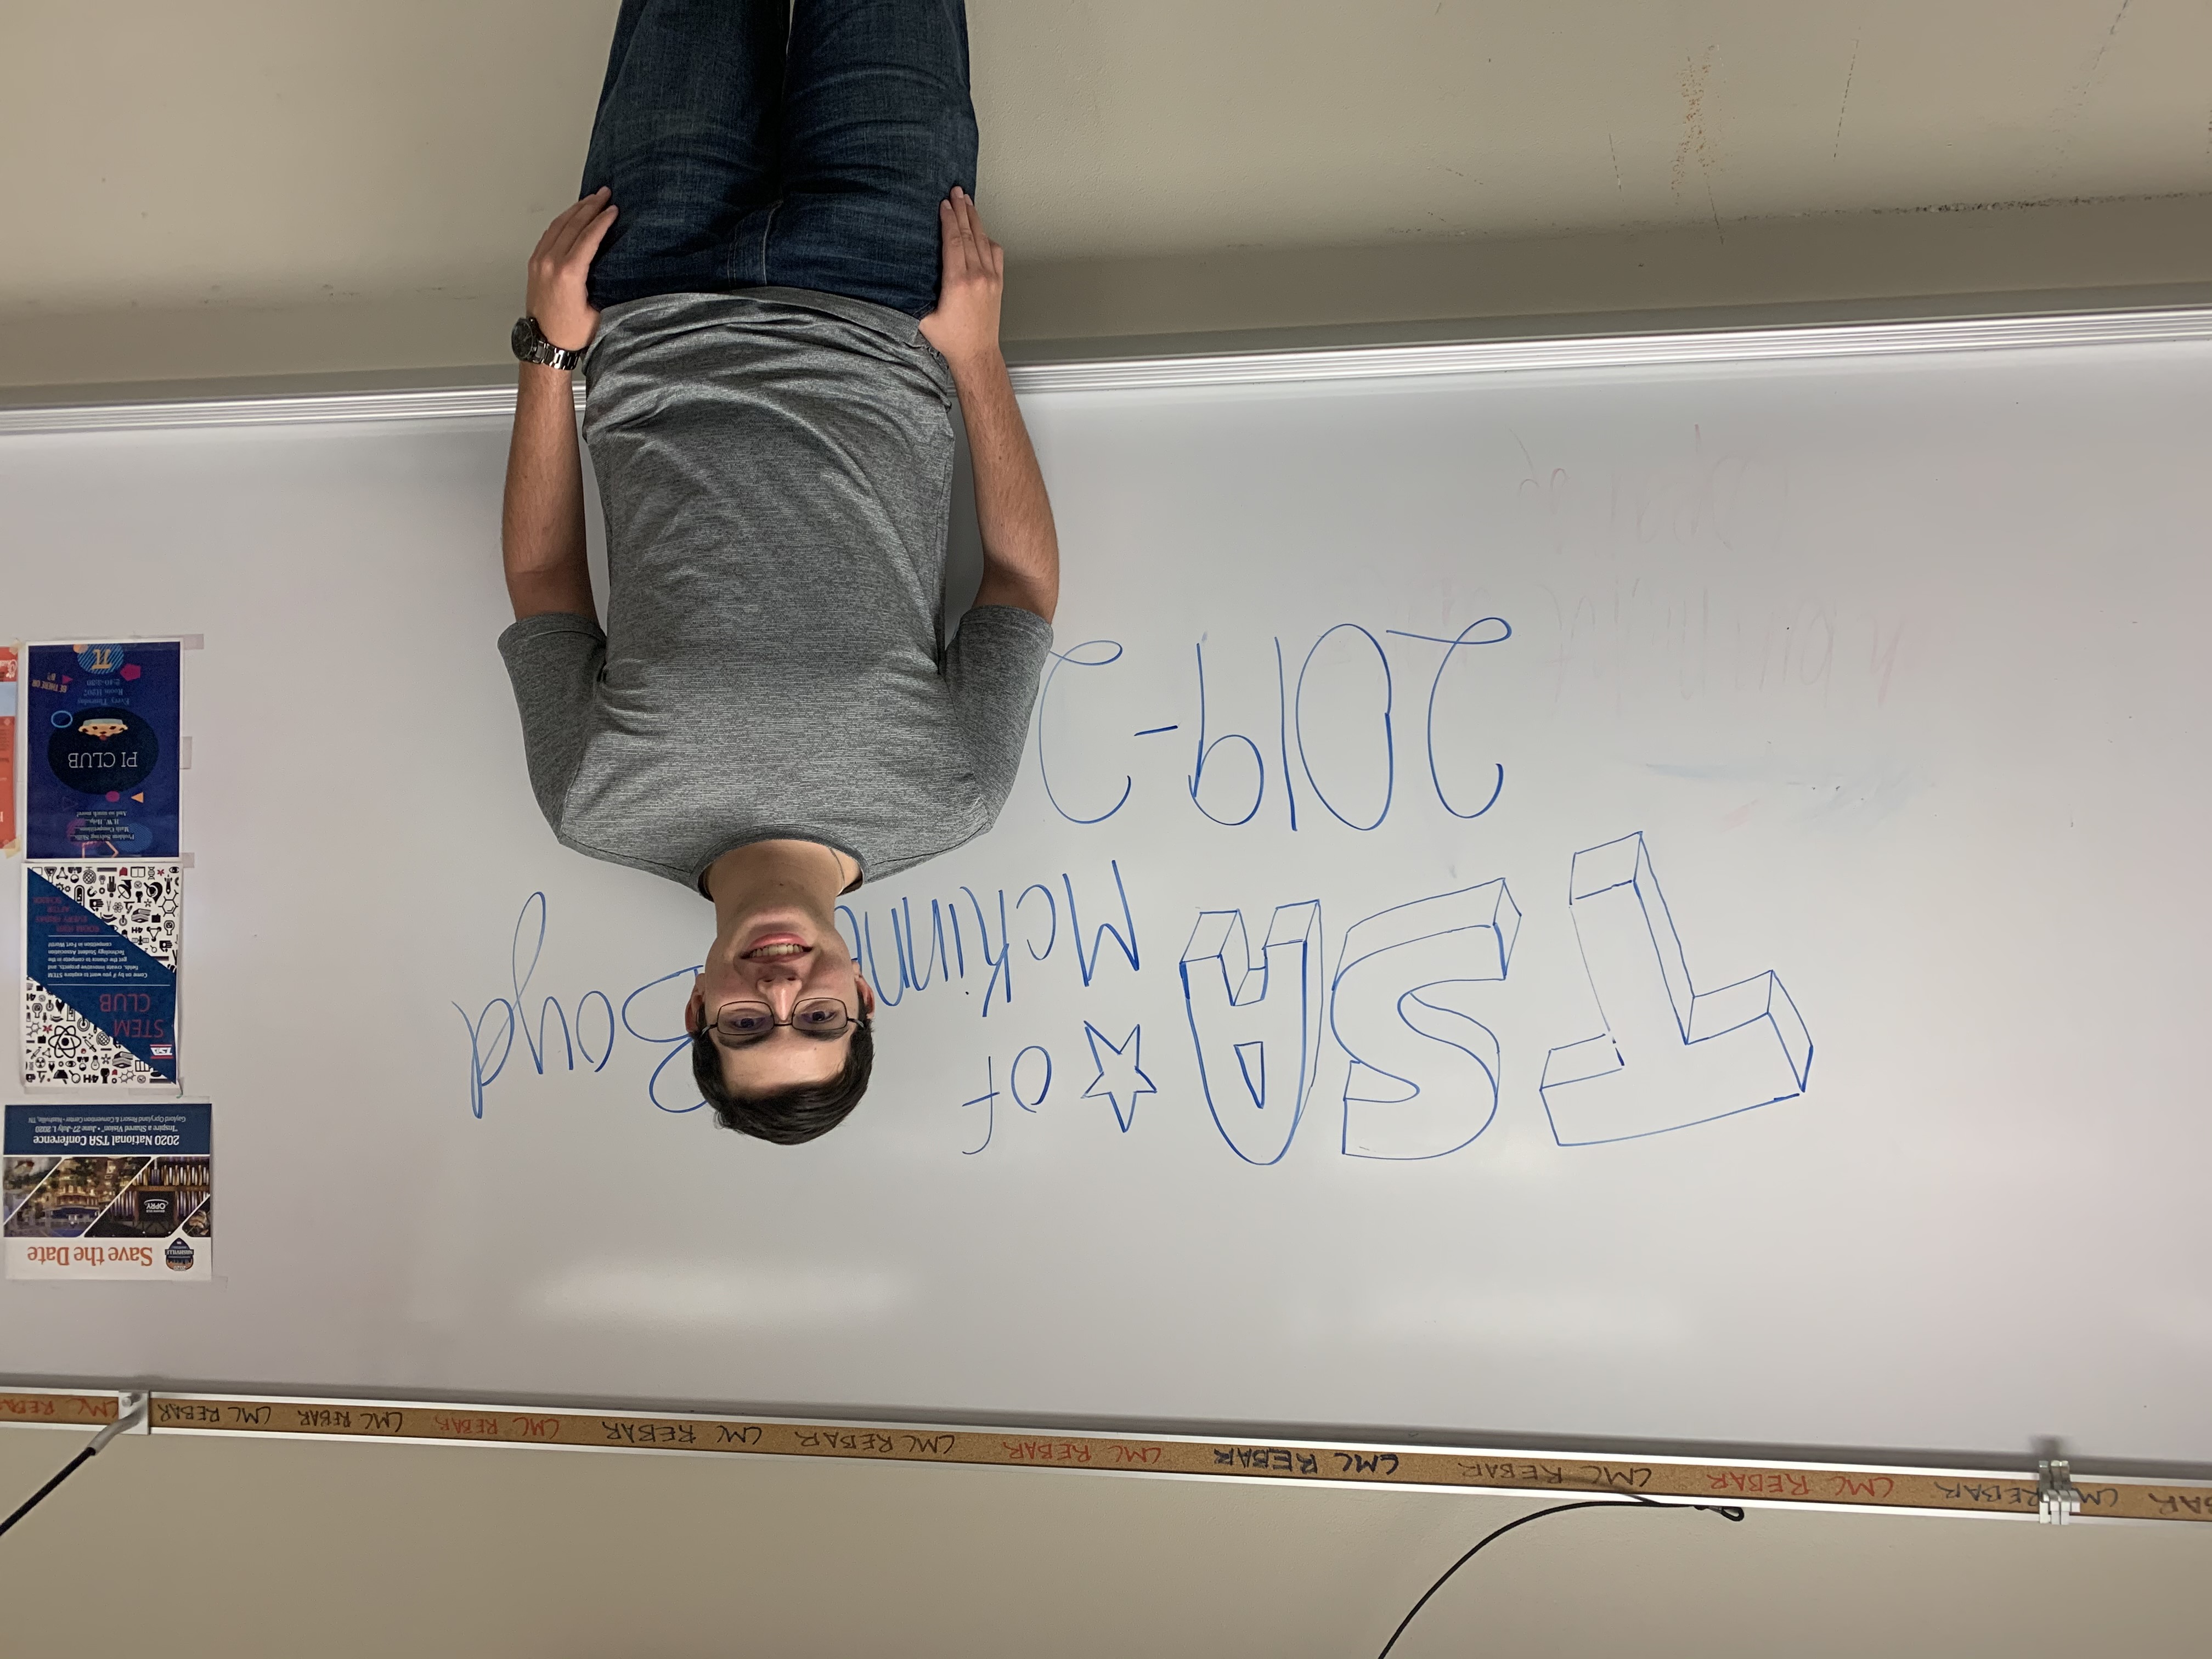 CMC REBAR CMC REBAR CMC REBAR CMC REBAR CMC REBAR CMC REBAR CMC REBAR CMC REBAR CMC REBAR CMC REBAR
TSA of
McKinn Boyd
2019-2
NASHVILLE
Save the Date
OPRY
2020 National TSA Conference
"Inspire a Shared Vision" • June 27-July 1, 2020
Gaylord Opryland Resort & Convention Center • Nashville, TN
4H
TSA
STEM
CLUB
Come on by if you want to explore STEM
fields, create innovative projects, and
get the chance to compete in the
Technology Student Association
competition in Fort Worth!
EVERY FRIDAY
AFTER
SCHOOL
Problem Solving Skills...
Math Competitions...
H.W. Help...
And so much more!
PI CLUB
Every Thursday
Room H207
BE THERE OR
π